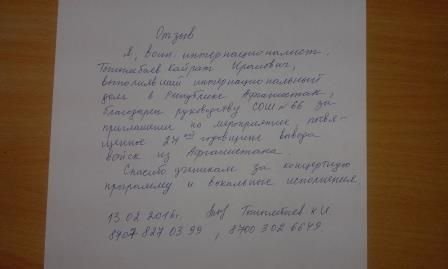 Отзыв
Я, воин. интернационалист.
Кайрат
выполнявший интернациональный
долг в Республике Афганистан,
благодарен руководству СОШ №66 за
приглашение на мероприятие, посвя-
щенное 27ой годовщине вывода
войск из Афганистана.
Спасибо ученикам за концертную
программу и вокальные исполнения.
13.02.2016г. К.И.
8707 827 03 99, 8700 302 6649.